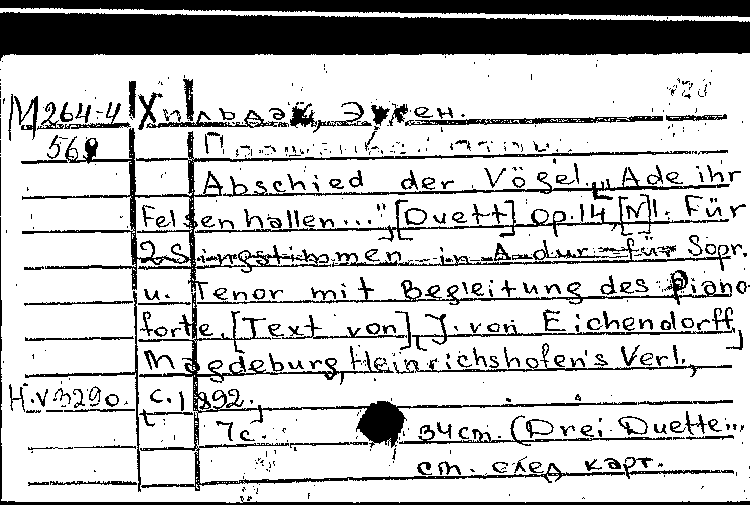 М264-4 Хильдах, Эуген.
569 Прощание птиц.
Abschied der Vögel „Ade ihr
Felsenhallen...", [Duett] Op.14, [N]1. Für
2 Singstimmen in A dur für Sopr.
u. Tenor mit Begleitung des Piano-
forte. [Text von] J. von Eichendorff.
Magdeburg, Heinrichshofen's Verl.,
H.V.3290. [c.1892.]
7с. 34cm. (Drei Duette...
ст. след карт.